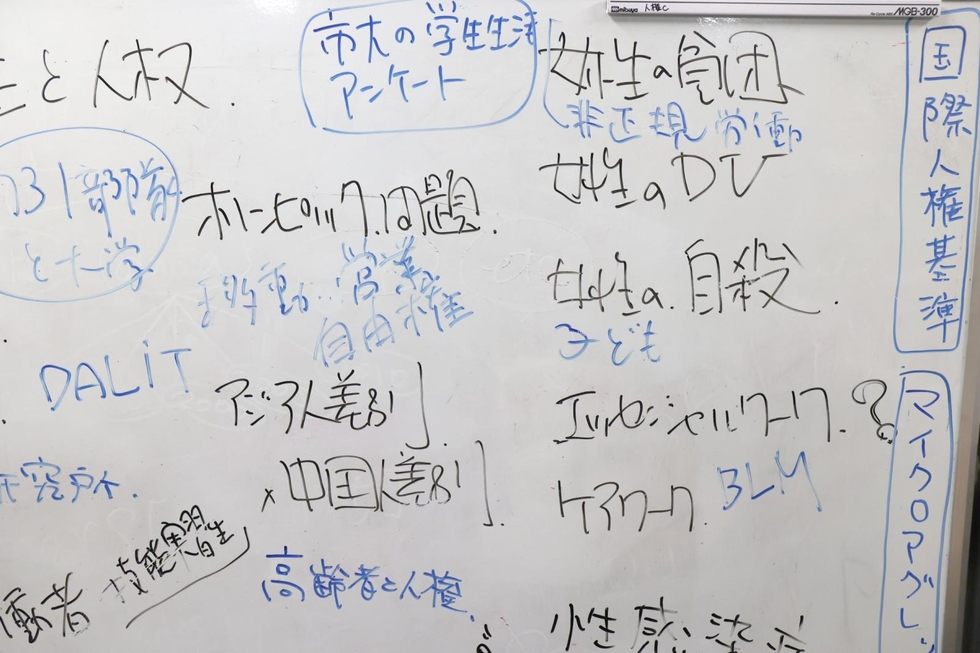 mitaya 人権C MGB-300
と人权.
市大の学生生活
アンケート
女性の貧困
非正規労働
731部隊
と大学
オリンピックの問題.
移動..営業
自由権
女性のDV
女性の.自殺.
子ども
DALIT
アジア人差別
×中国人差別
エッセンシャルワーク.?
ケアワーク.
BLM
研究所.
働者
技能実習生
高齢者と人権.
性感染症
国際人権基準
マイクロアグレッ